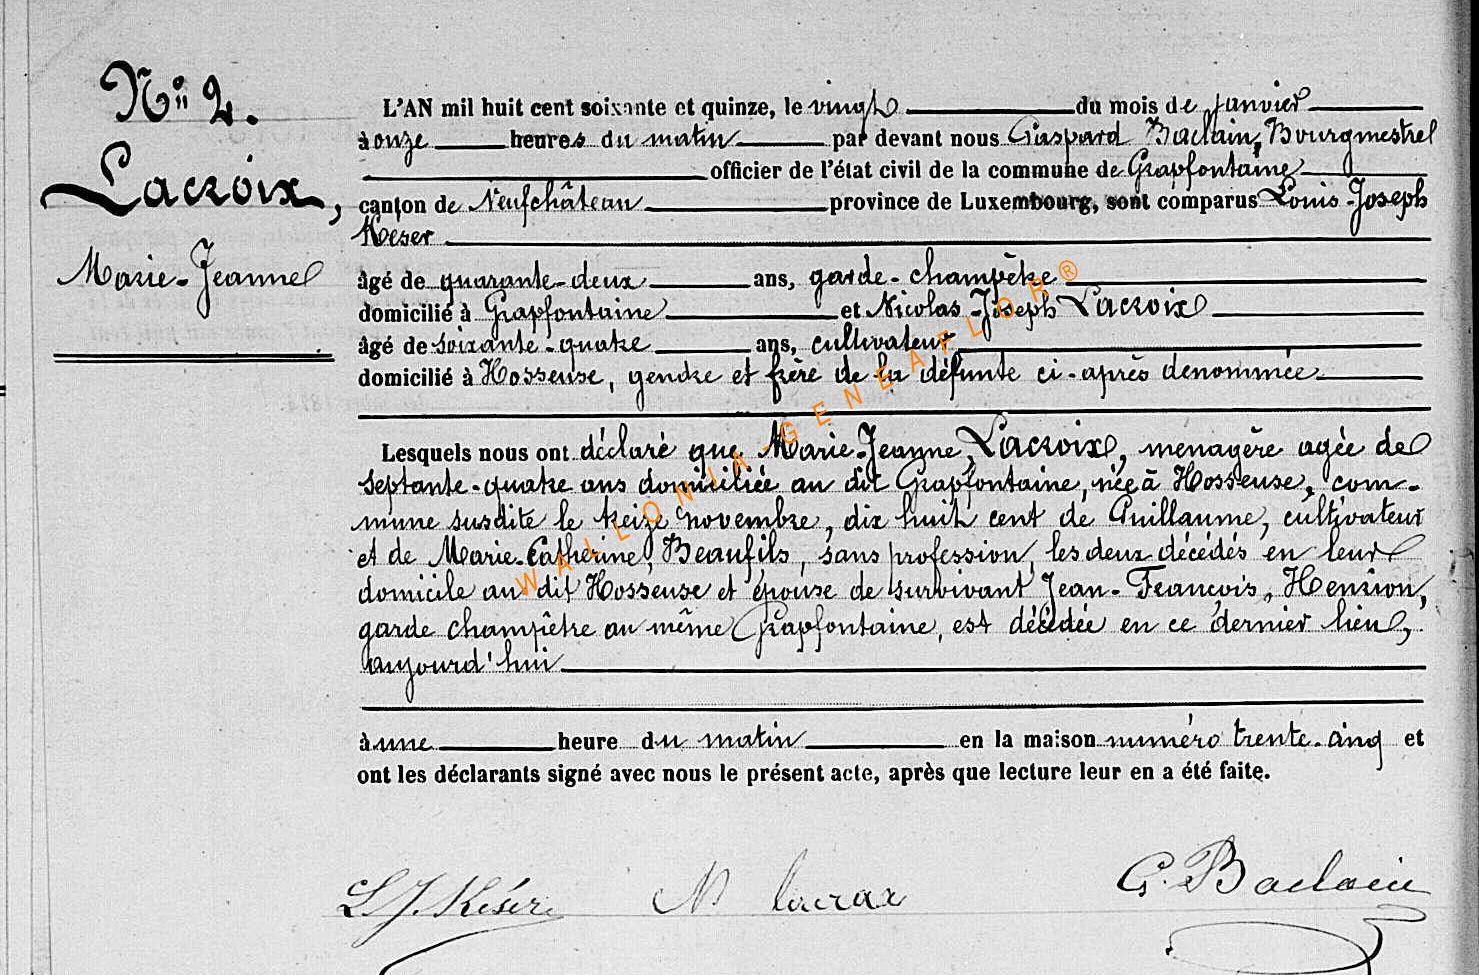 Nº 2.
Lacroix,
Marie-Jeanne
L'AN mil huit cent soixante et quinze, le vingt du mois de janvier
à onze heures du matin par devant nous Gaspard Baclain, Bourgmestre
officier de l'état civil de la commune de Grapfontaine
canton de Neufchâteau province de Luxembourg, sont comparus Louis-Joseph
Keser
âgé de quarante-deux ans, garde-champêtre
domicilié à Grapfontaine et Nicolas-Joseph Lacroix
âgé de soixante-quatre ans, cultivateur
domicilié à Hosseuse, gendre et frère de la défunte ci-après dénommée.
Lesquels nous ont déclaré que Marie-Jeanne Lacroix, menagère agée de
septante-quatre ans domiciliée au dit Grapfontaine, née à Hosseuse, com-
mune susdite le treize novembre, dix huit cent de Guillaume, cultivateur
et de Marie-Catherine, Beaufils, sans profession, les deux décédés en leur
domicile au dit Hosseuse et épouse de survivant Jean-François, Henrion,
garde champêtre au même Grapfontaine, est décédée en ce dernier lieu,
aujourd'hui
à une heure du matin en la maison numéro trente-cinq et
ont les déclarants signé avec nous le présent acte, après que lecture leur en a été faite.
L J. Késer N lacroix G. Baclain
WALLONIA-GENEAFLOR®